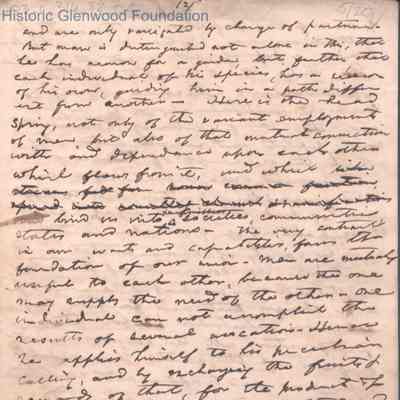 Historic Glenwood Foundation
12
and are only varigated by change of
But man is distinguished not alone in this, that
he has reason for a guide, but, further that
each individual of his species, has a reason
of his own, guiding him in a path differ
ent from another - Here is the head
Spring, not only of the variant employments
of men, but also of that mutual connection
with and dependance upon each other
which flows from it, and which
bind us into societies, communities
states and nations - The very contrast
in our wants and capabilities, form the
foundation of our union - Men are mutually
useful to each other, because the one
may supply the need of the other - One
individual can not accomplish the
results of several avocations - Hence
he applies himself to his peculiar
calling, and by exchanging the fruits
of that, for the product of